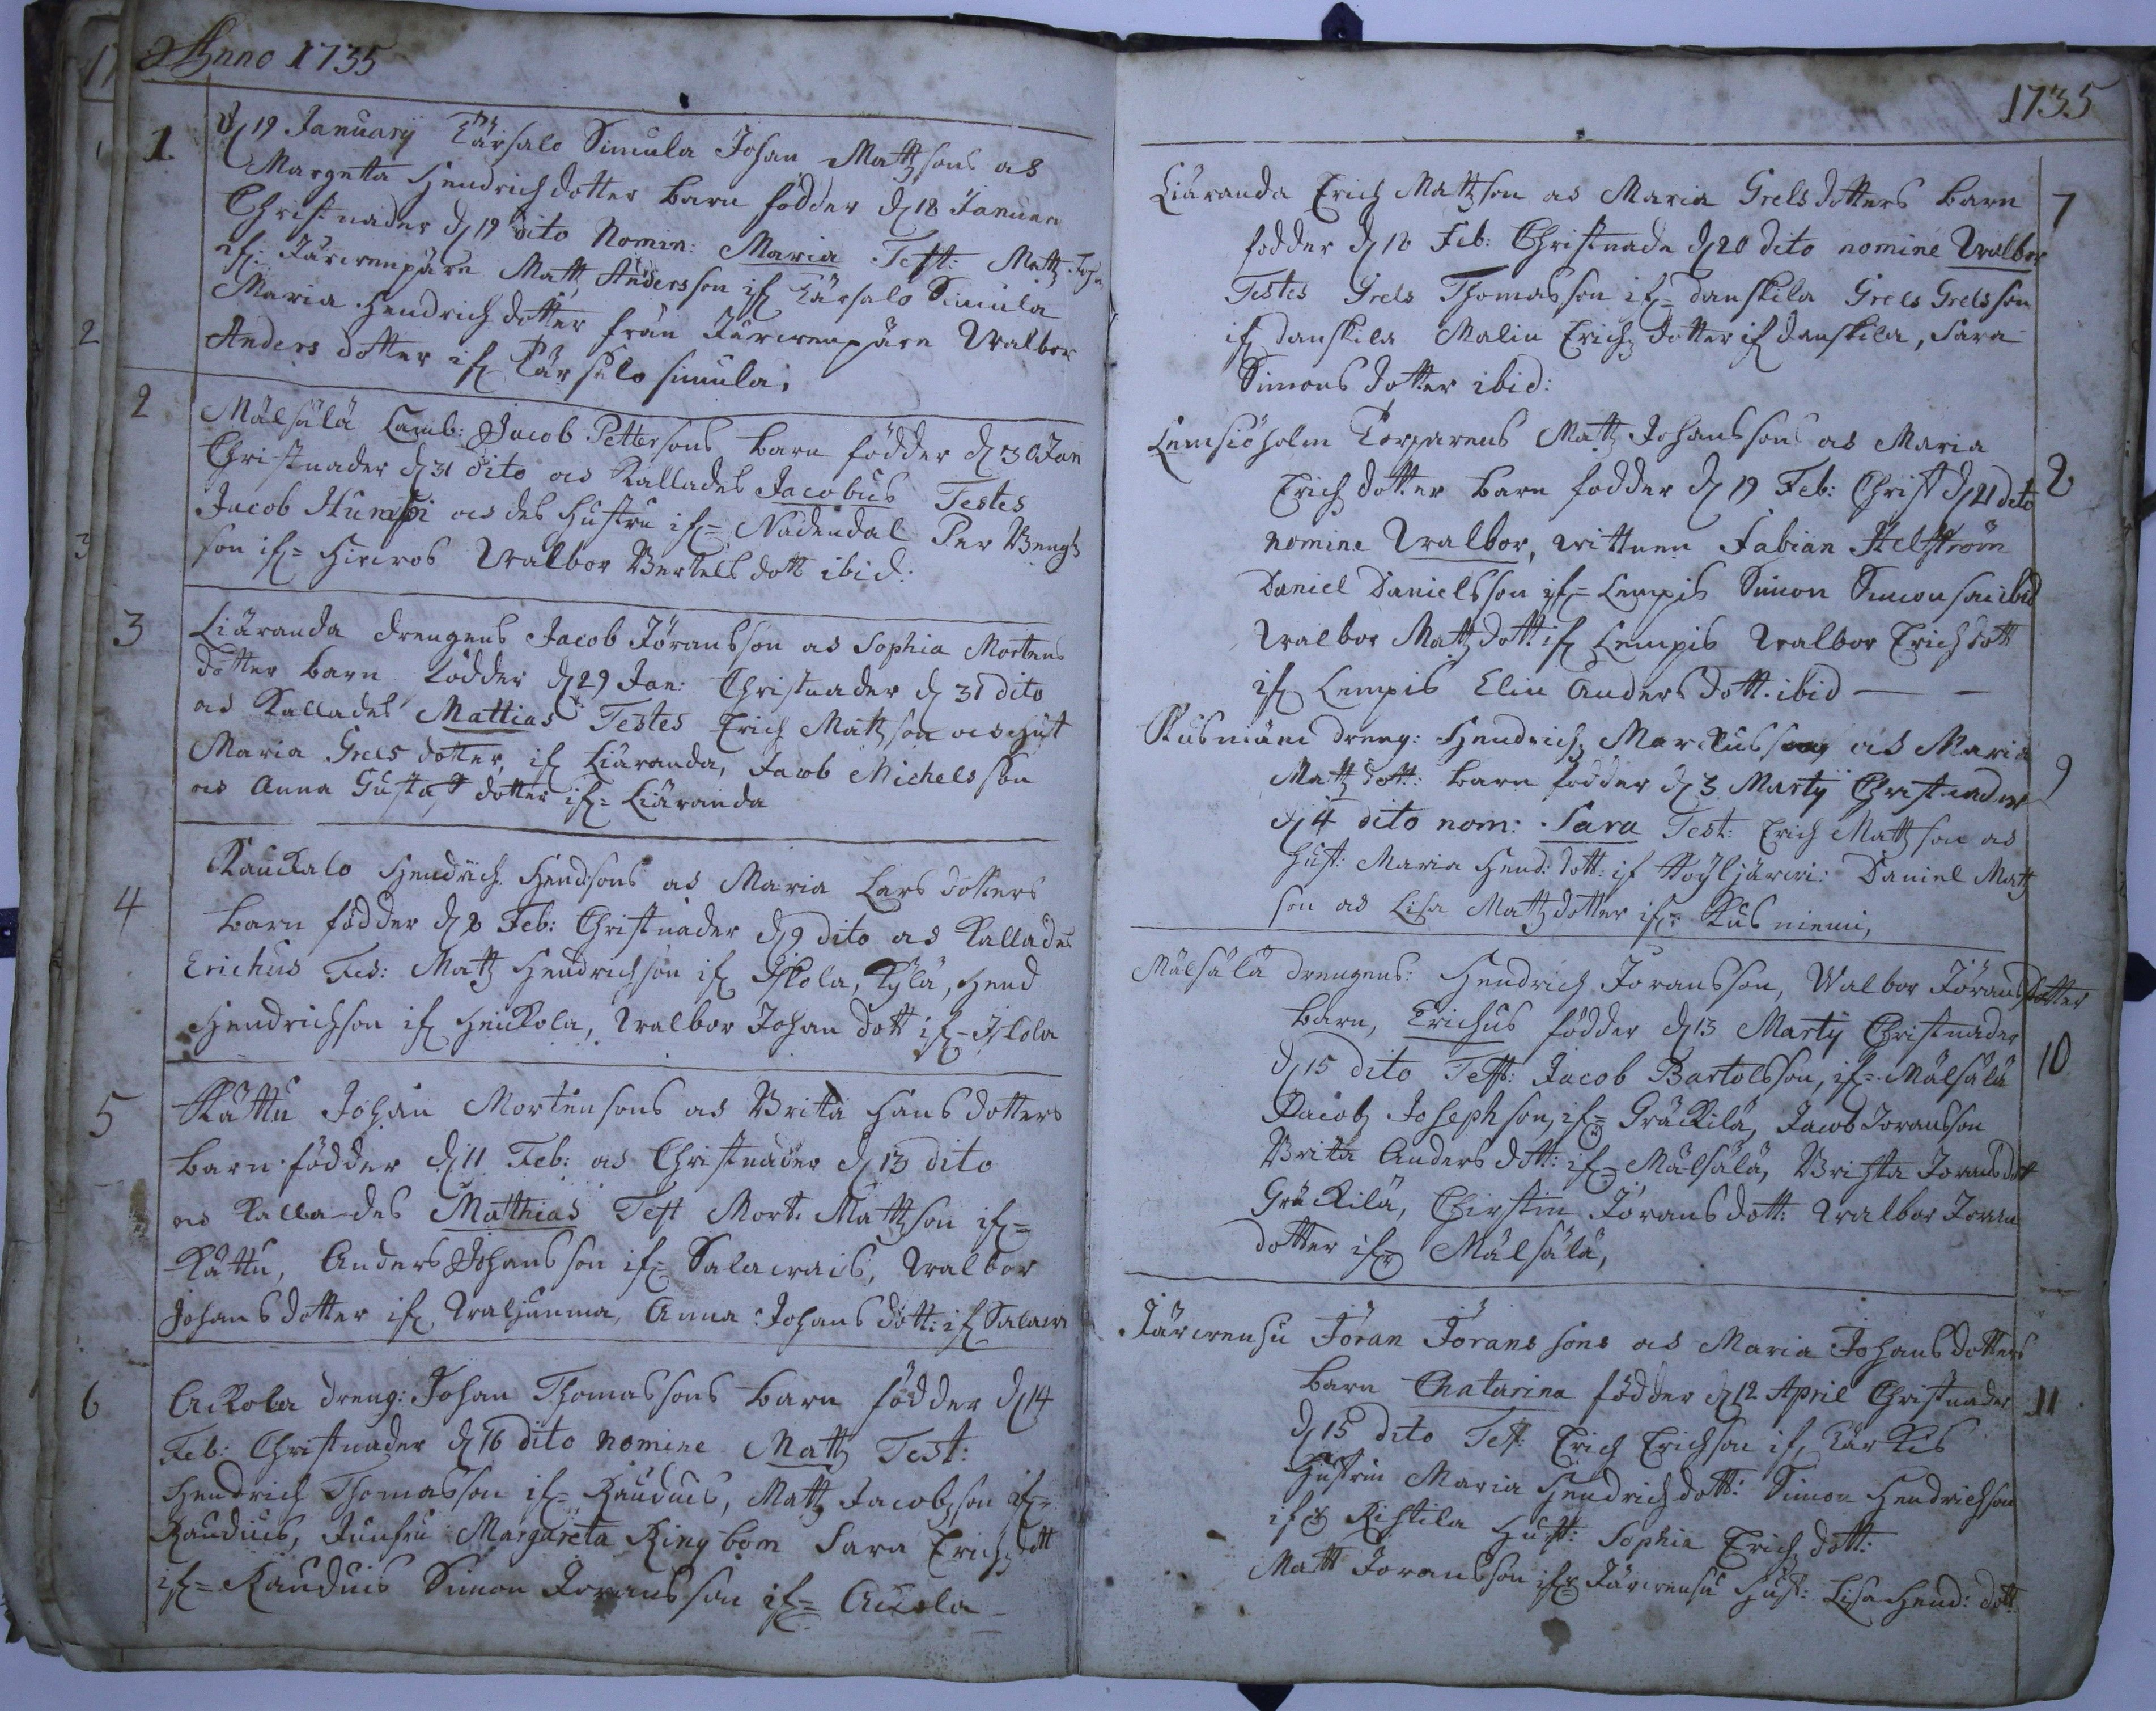 Anno 1735
1 d 19 January Kärsalo Simula Johan Mattsons as
Margetta Hendrichdotter barn födder d 18 Januar
Christnades d 19 dito Nomin: Maria Test: Matz Joh
if Järwenpäre Matz Andersson if Kärsalo Simula
Maria Hendrichdotter från Järwenpäre Walbor
Anders dotter if Kärsalo simula.
2 Mälsälä Lamb: Jacob Pettersons barn födder d 30 Jan
Christnades d 31 dito as Kallades Jacobus Testes
Jacob as des Hustru if= Nådendal Per Bengtz
son if= Hirwos Walbor Bertels dott ibid:
3 Liäranda drengens Jacob Jöransson as Sophia Mortens
dotter barn födder d 29 Jan: Christnades d 31 dito
as Kallades Mattias Testes Erich Matzson as Hust
Maria Grels dotter, if Liäranda, Jacob Michelsson
as Anna Gustaf dotter if= Liäranda
4 Kauckalo Hendrich Hendsons as Maria Lars dotters
barn födder d 8 Feb: Christnades d 9 dito as Kallades
Erichus Tes: Matz Hendrichson if Iskola, Kylä, Hend
Hendrichson if Heickola, Walbor Johan dott if= Iskola
5 Kättu Johan Mortensons as Britta Hans dotters
barn födder d 11 Feb: as Christnades d 13 dito
as Kallades Mathias Test Mort: Mattson if=
Kättu, Anders Johansson if= Salawais, Walbor
Johansdotter if Waljunma, Anna Johans dott: if Salawi
6 Ackola dreng: Johan Thomassons barn födder d 14
Feb: Christnades d 16 dito nomine Matz Test:
Hendrich Thomasson if= Rauduis, Matz Jacobson if=
Rauduis, Junfru Margareta Ringbom Sara Erichs dott
if= Rauduis Simon Joransson if= Ackola
1735
Liäranda Erich Mattson as Maria Grelsdotters barn 7
födder d 18 Feb: Christnade d 20 dito nomine Walbor
Testes Grels Thomasson if= danskila Grels Grelsson
if danskila Malin Erichs dotter if danskila, Sara
Simons dotter ibid:
Lemsiöholm Torparens Matz Johanssons as Maria
Erichdotter barn födder d 19 Feb: Christ d 21 dito 8
nomine Walbor, wittnen Fabian Helström
Daniel Danielsson if= Lempis Simon Simonson ibid
Walbor Matz dott: if Lempis Walbor Erichdott
if Lempis Elin Anders dott. ibid
Kusniäm dreng: Hendrich Markusson as Maria
Matz dott: barn födder d 3 Marty Christnades 9
d 4 dito nom: Sara Test: Erich Mattson as
Hust: Maria Hend: dott: if Höyljärwi: Daniel Matz
son as Lisa Mattzdotter if= Kusniemi,
Mälsälä drengens: Hendrich Joransson, Walbor Jörans dotter
barn, Erichus födder d 13 Marty Christnades
d 15 dito Test: Jacob Bartolsson, if= Mälsälä 10
Jacob Josephson, if= Gräckilä, Jacob Joransson
Britta Anders dott: if= Mälsälä, Britta Jorans dott
Gräckilä, Chirstin Jörans dott: Walbor Joran
dotter if= Mälsälä,
Järwensu Jöran Jöranssons as Maria Johansdotters
barn Chatarina födder d 12 April Christnades 11
d 15 dito Test: Erich Erichson if Kärkis
Hustrun Maria Hendrichdott: Simon Hendrichson
if= Ristila Hust: Sophia Erichs dott:
Matt Joransson if= Järwensu Hust: Lisa Hend: dott